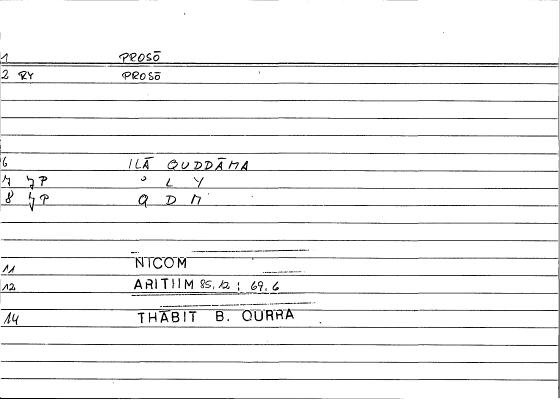 1 PROSŌ
2 RY PROSŌ
6 ILĀ QUDDĀMA
7 P ʾ L Y
8 P Q D M
11 NICOM
12 ARITHM 85,12 ; 69,6
14 THĀBIT B. QURRA